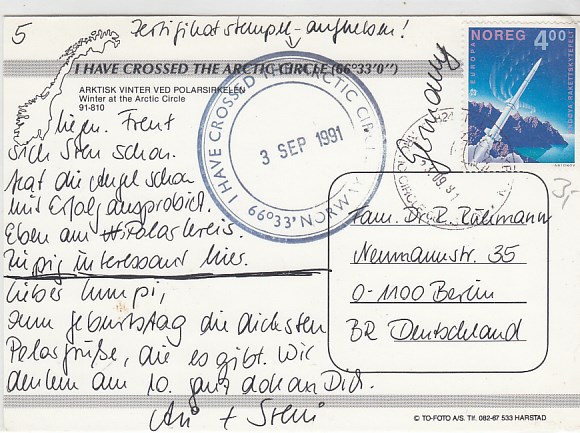 5
Zertifikatstempel - aufheben!
I HAVE CROSSED THE ARCTIC CIRCLE (66°33'0")
ARKTISK VINTER VED POLARSIRKELEN
Winter at the Arctic Circle
91-810
liegen. Freut
sich Sten schon.
Hat die Angel schon
mit Erfolg ausprobiert.
Eben am Polarkreis.
interessant hier.
Lieber Lumpi,
zum Geburtstag die dicksten
Polargrüße, die es gibt. Wir
denken am 10. ganz doll an Dich.
+ Steni
I HAVE CROSSED THE ARCTIC CIRCLE
3 SEP 1991
66°33' NORWAY
Germany
NOREG 4,00
EUROPA
ANDØYA RAKETTSKYTEFELT
Fam. Dr. R. Rühmann
Neumannstr. 35
O-1100 Berlin
BR Deutschland
© TO-FOTO A/S. Tlf. 082-67 533 HARSTAD